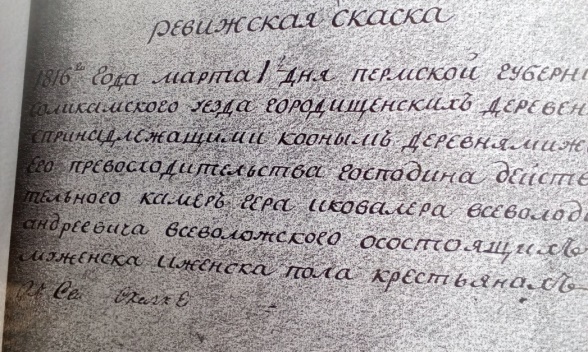 ревижская скаска
1816го года марта 1го дня пермской губерни
соликамского уезда городищенскихъ деревен
спринадлежащими коонымъ деревнямиж
Его превосходительства господина действ
тельного камеръ гера иковалера всеволод
андреевича всеволожского осостоящихъ
мяженска иженска пола крестьянахъ